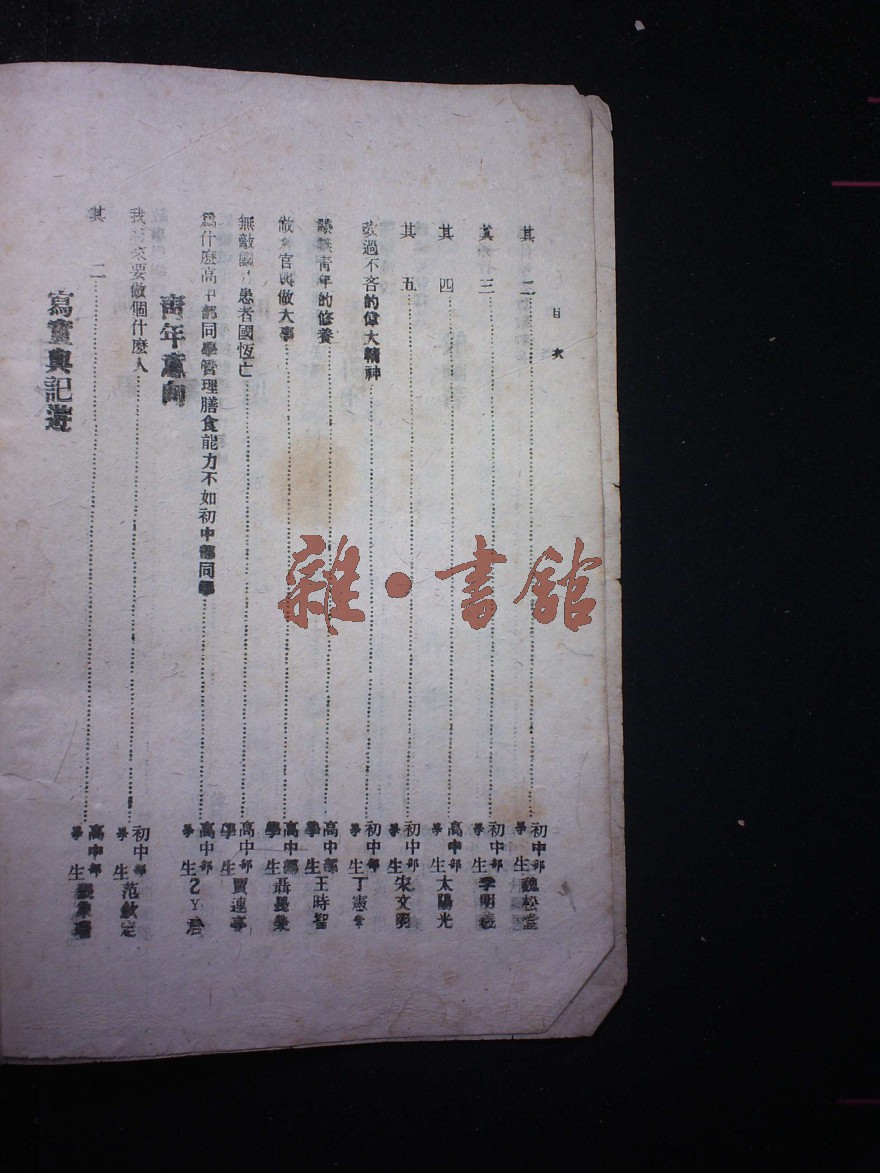 目次
其二 初中部學生魏松堂
其三 初中部學生李明義
其四 高中部學生太陽光
其五 初中部學生宋文明
改過不吝的偉大精神 初中部學生丁憲
青年的修養 高中部學生王時智
做大官與做大事 高中部學生聶
無敵國外患者國恆亡 高中部學生賈連亭
爲什麼高中部同學管理膳食能力不如初中部同學 高中部學生SY君
青年意向
我將來要做個什麼人 初中部學生范欽定
其二 高中部學生
寫實與記遊
雜·書館